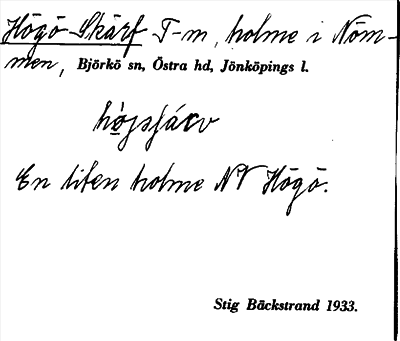 Högö Skärf T-m, holme i Nöm-
men, Björkö sn, Östra hd, Jönköpings l.
En liten holme NV Högö.
Stig Bäckstrand 1933.